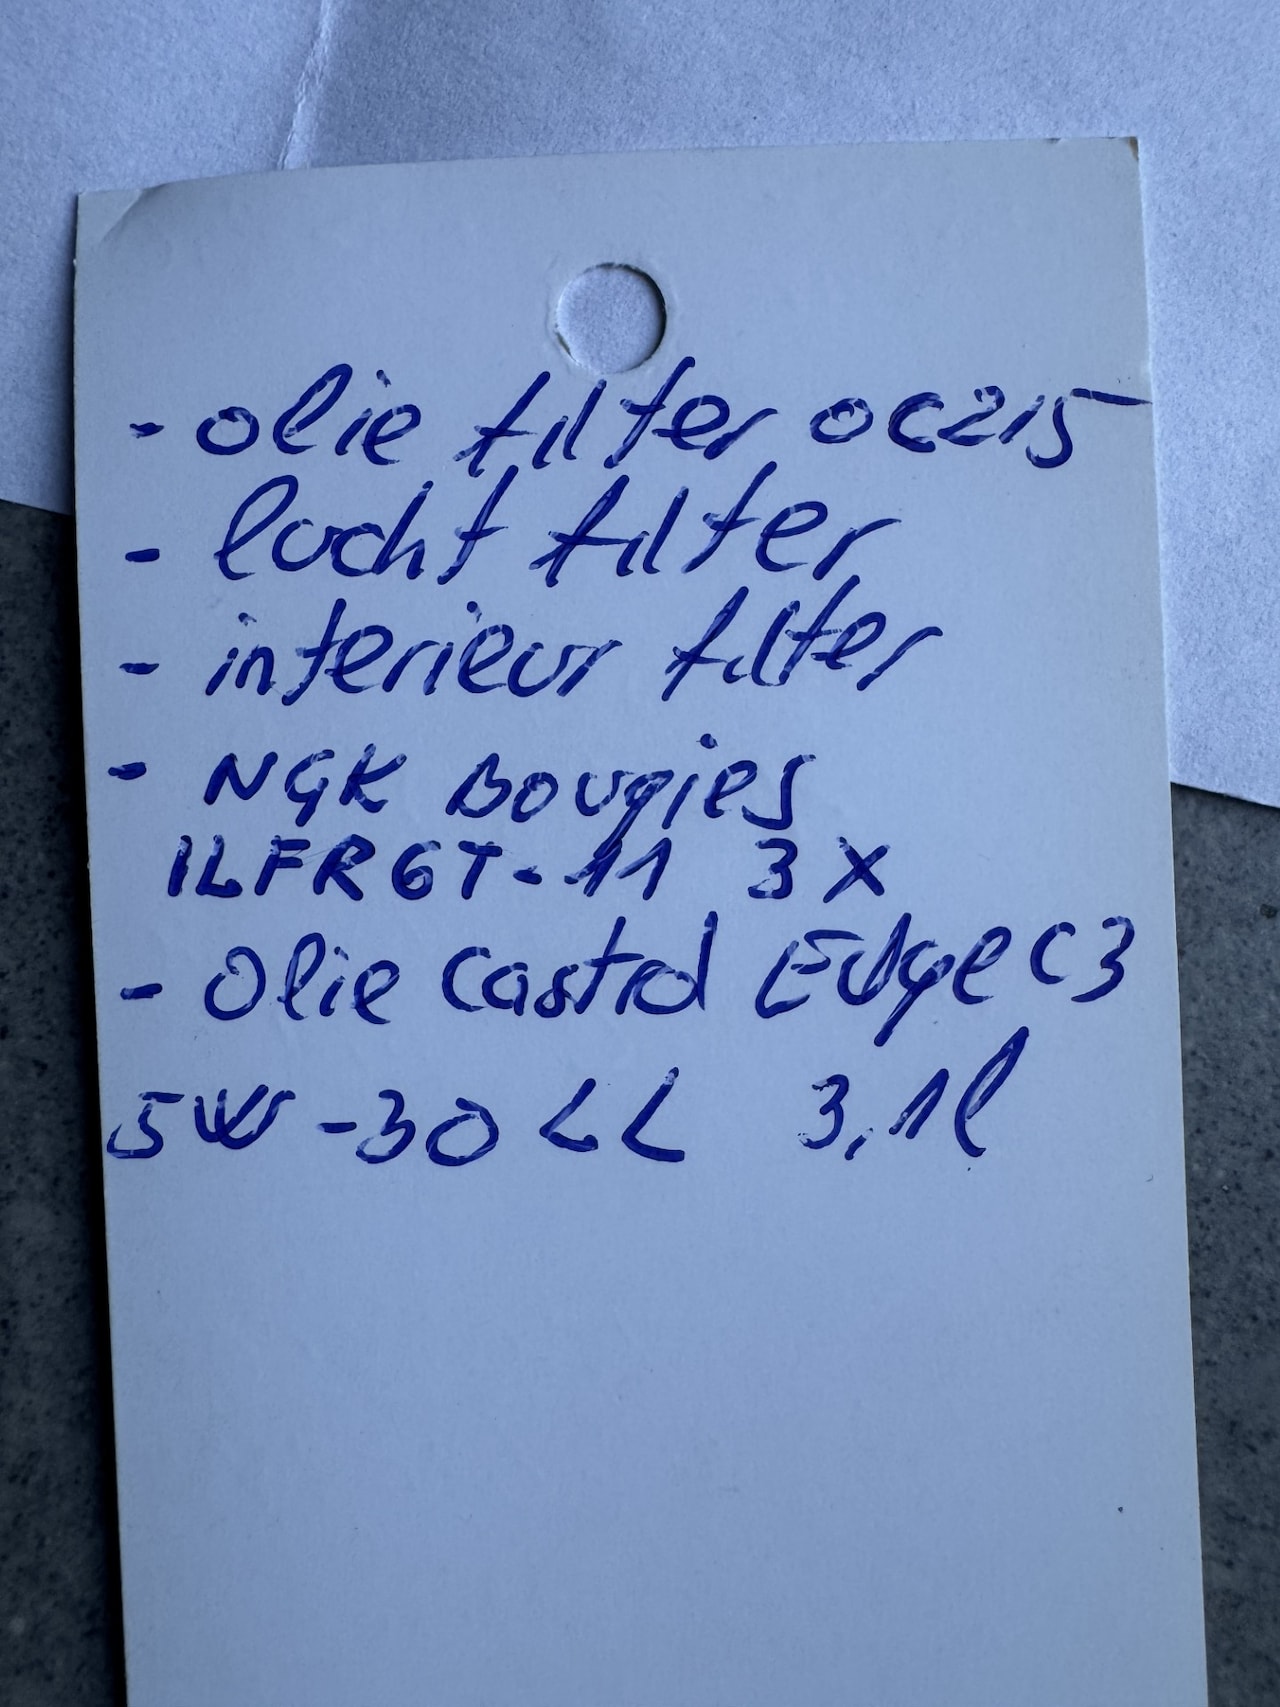 - Olie filter OC215
- lucht filter
- interieur filter
- NGK Bougies
ILFR6T-11 3X
- Olie Castrol Edge C3
5W-30 LL 3,1l